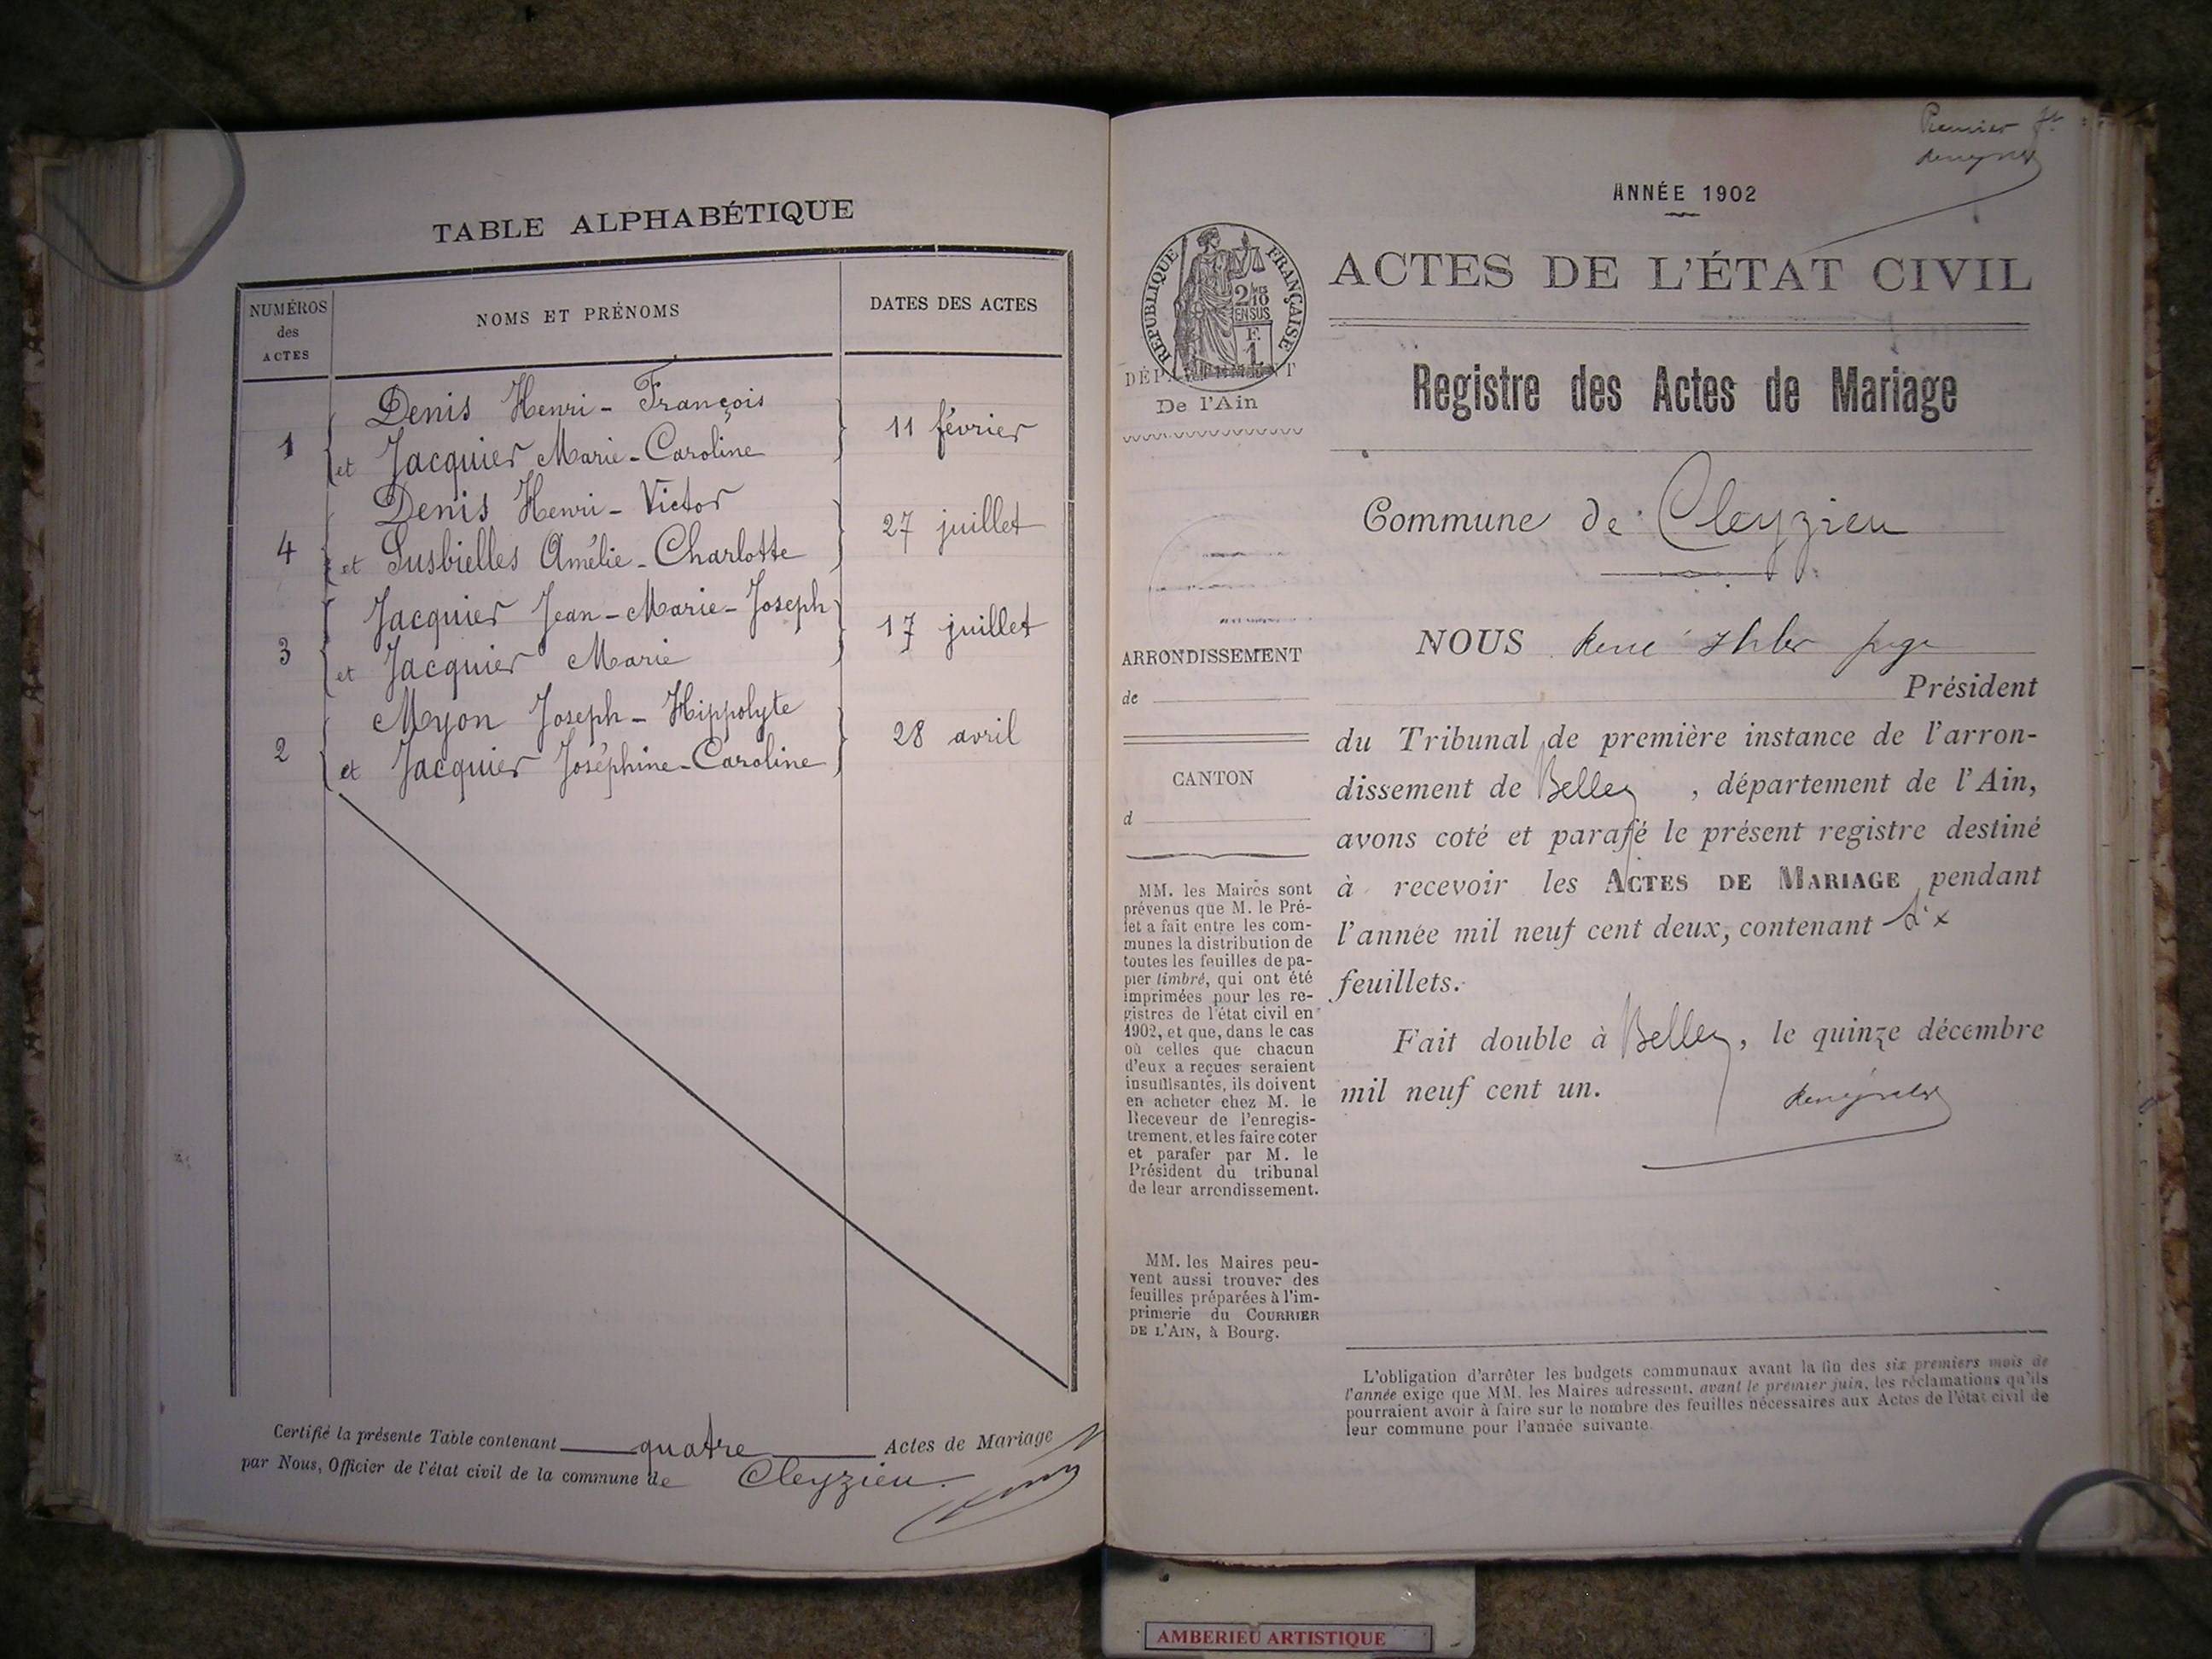 TABLE ALPHABÉTIQUE
NUMÉROS
des
ACTES
NOMS ET PRÉNOMS
DATES DES ACTES
Denis Henri - François
1 et Jacquier Marie - Caroline 11 février
Denis Henri - Victor
4 et Susbielles Amélie - Charlotte 27 juillet
Jacquier Jean - Marie - Joseph
3 et Jacquier Marie 17 juillet
Myon Joseph - Hippolyte
2 et Jacquier Joséphine - Caroline 28 avril
Certifié la présente Table contenant quatre Actes de Mariage
par Nous, Officier de l'état civil de la commune de Cleyzieu.
Premier
ANNÉE 1902
ACTES DE L'ÉTAT CIVIL
Registre des Actes de Mariage
RÉPUBLIQUE FRANÇAISE
2/10
EN SUS
F.
1
DÉPARTEMENT
De l'Ain
Commune de Cleyzieu
ARRONDISSEMENT
de
CANTON
d
NOUS René juge
Président
du Tribunal de première instance de l'arron-
dissement de Belley , département de l'Ain,
avons coté et parafé le présent registre destiné
à recevoir les ACTES DE MARIAGE pendant
l'année mil neuf cent deux, contenant six
feuillets.
Fait double à Belley, le quinze décembre
mil neuf cent un.
MM. les Maires sont
prévenus que M. le Pré-
fet a fait entre les com-
munes la distribution de
toutes les feuilles de pa-
pier timbré, qui ont été
imprimées pour les re-
gistres de l'état civil en
1902, et que, dans le cas
où celles que chacun
d'eux a reçues seraient
insuffisantes, ils doivent
en acheter chez M. le
Receveur de l'enregis-
trement, et les faire coter
et parafer par M. le
Président du tribunal
de leur arrondissement.
MM. les Maires peu-
vent aussi trouver des
feuilles préparées à l'im-
primerie du COURRIER
DE L'AIN, à Bourg.
L'obligation d'arrêter les budgets communaux avant la fin des six premiers mois de
l'année exige que MM. les Maires adressent, avant le premier juin, les réclamations qu'ils
pourraient avoir à faire sur le nombre des feuilles nécessaires aux Actes de l'état civil de
leur commune pour l'année suivante.
AMBERIEU ARTISTIQUE